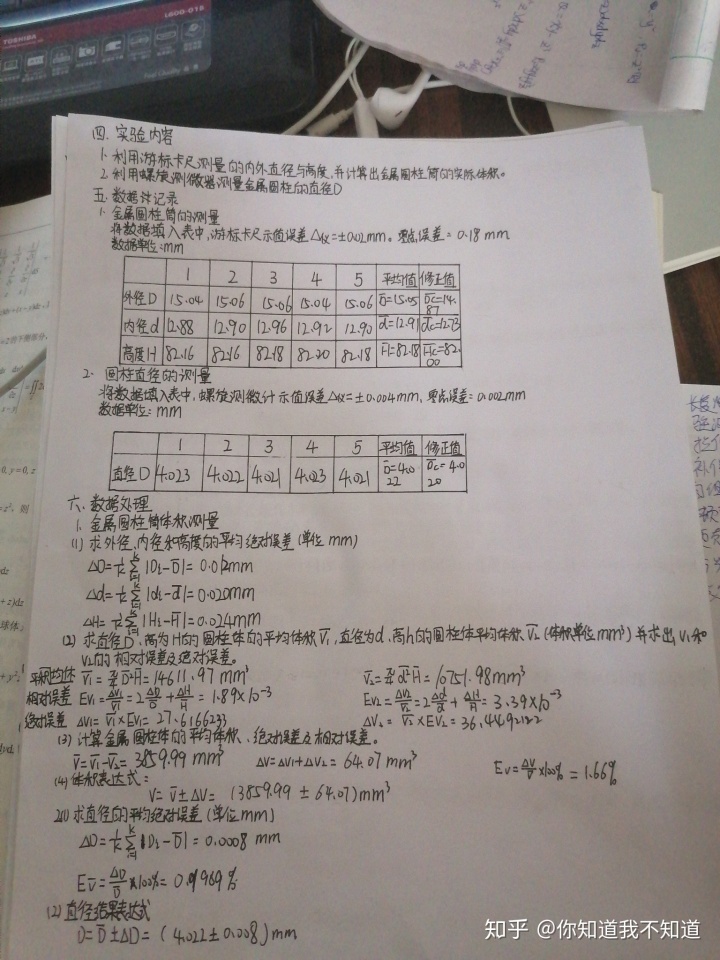 TOSHIBA
L600-01S
四. 实验内容
1. 利用游标卡尺测量的内外直径与高度,并计算出金属圆柱筒的实际体积。
2. 利用螺旋测微器测量金属圆柱的直径D
五. 数据计记录
1. 金属圆柱筒的测量
将数据填入表中,游标卡尺示值误差△仪=±0.02mm。零点误差=0.18mm
数据单位:mm
1 2 3 4 5 平均值 修正值
外径D 15.04 15.06 15.06 15.04 15.06 D̄=15.05 D̄c=14.87
内径d 12.88 12.90 12.96 12.92 12.90 d̄=12.91 d̄c=12.73
高度H 82.16 82.16 82.18 82.20 82.18 H̄=82.18 H̄c=82.00
2. 圆柱直径的测量
将数据填入表中,螺旋测微计示值误差△仪=±0.004mm,零点误差=0.002mm
数据单位:mm
1 2 3 4 5 平均值 修正值
直径D 4.023 4.022 4.021 4.023 4.021 D̄=4.022 D̄c=4.020
六. 数据处理
1. 金属圆柱筒体积测量
(1) 求外径、内径和高度的平均绝对误差(单位mm)
△D=1/k Σ|Di-D̄|=0.012mm
△d=1/k Σ|di-d̄|=0.020mm
△H=1/k Σ|Hi-H̄|=0.024mm
(2) 求直径D,高为H的圆柱体的平均体积V̄₁,直径为d,高h的圆柱体平均体积V̄₂(体积单位mm³)并求出V₁和
V₂的相对误差及绝对误差。
V̄₁=π/4 D̄²H̄=14611.97mm³ V̄₂=π/4 d̄²H̄=10751.98mm³
相对误差 EV₁=△V₁/V̄₁=2△D/D̄+△H/H̄=1.89×10⁻³ EV₂=△V₂/V̄₂=2△d/d̄+△H/H̄=3.39×10⁻³
绝对误差 △V₁=V̄₁×EV₁=27.6166233 △V₂=V̄₂×EV₂=36.4492122
(3) 计算金属圆柱体的平均体积、绝对误差及相对误差。
V̄=V̄₁-V̄₂=3859.99mm³ △V=△V₁+△V₂=64.07mm³ EV=△V/V̄×100%=1.66%
(4) 体积表达式:
V=V̄±△V=(3859.99±64.07)mm³
2(1) 求直径的平均绝对误差(单位mm)
△D=1/k Σ|Di-D̄|=0.0008mm
(2) 直径结果表达式
D=D̄±△D=(4.022±0.008)mm
知乎 @你知道我不知道